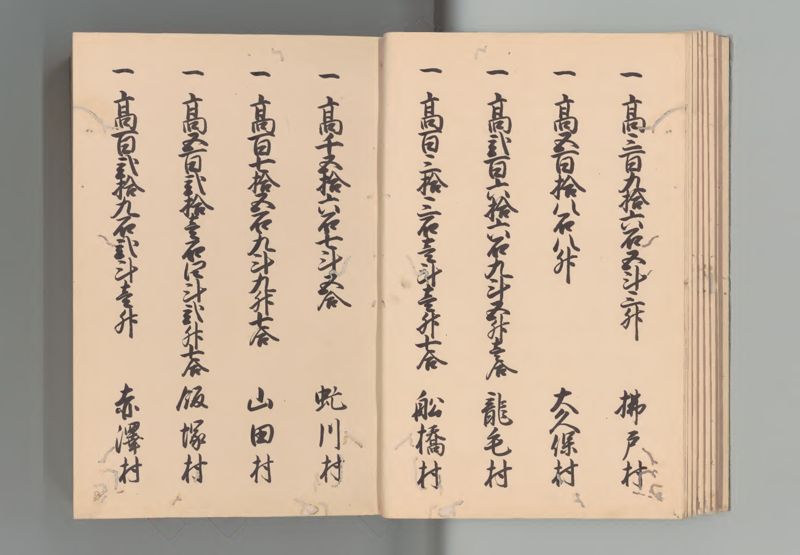 一 高三百九拾六石五斗三升 拂戸村
一 高五百拾八石八升 大久保村
一 高弐百六拾六石九斗五升壱合 龍毛村
一 高百三拾三石壱斗壱升七合 船橋村
一 高千五拾六石七斗五合 虻川村
一 高百七拾五石九斗九升七合 山田村
一 高五百弐拾壱石四斗弐升七合 飯塚村
一 高百弐拾九石弐斗壱升 赤澤村